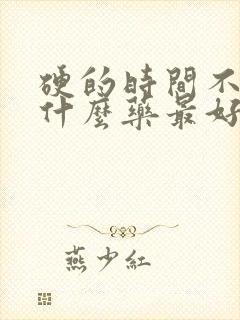 硬的時間不
什麼藥最好
燕少紅